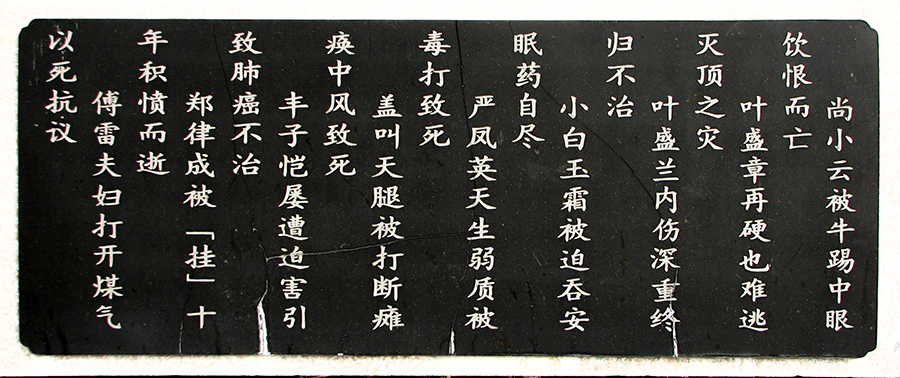 尚小云被牛踢中眼
饮恨而亡
叶盛章再硬也难逃
灭顶之灾
叶盛兰内伤深重终
归不治
小白玉霜被迫吞安
眠药自尽
严凤英天生弱质被
毒打致死
盖叫天腿被打断瘫
痪中风致死
丰子恺屡遭迫害引
致肺癌不治
郑律成被「挂」十
年积愤而逝
傅雷夫妇打开煤气
以死抗议